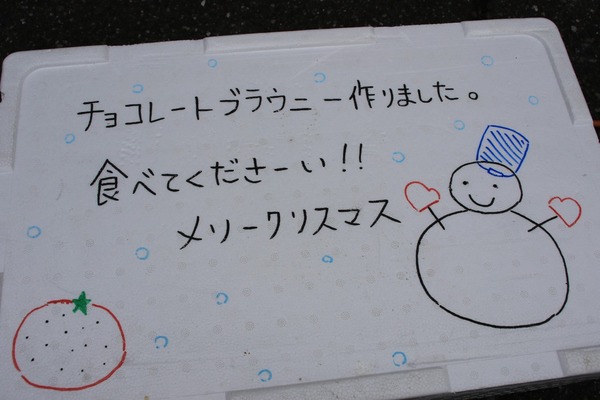 チョコレートブラウニー作りました。
食べてくださーい!!
メリークリスマス